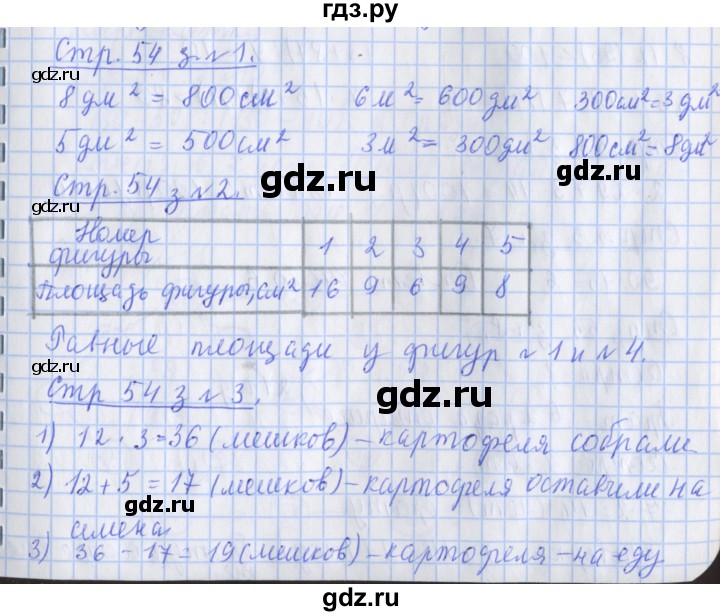 гдз.ру
Стр. 54 з. №1.
gdz.ru gdz.ru
8 дм² = 800 см² 6 м² = 600 дм² 300 см² = 3 дм²
gdz.ru
5 дм² = 500 см² 3 м² = 300 дм² 800 см² = 8 дм²
gdz.ru gdz.ru
Стр. 54 з №2.
gdz.ru
Номер фигуры 1 2 3 4 5
Площадь фигуры, см² 16 9 6 9 8
Равные площади у фигур №1 и №4.
gdz.ru gdz.ru
Стр 54 з №3.
gdz.ru
1) 12 · 3 = 36 (мешков) – картофеля собрали
2) 12 + 5 = 17 (мешков) – картофеля оставили на
gdz.ru gdz.ru
семена
3) 36 – 17 = 19 (мешков) – картофеля – на еду
gdz.ru
gdz.ru